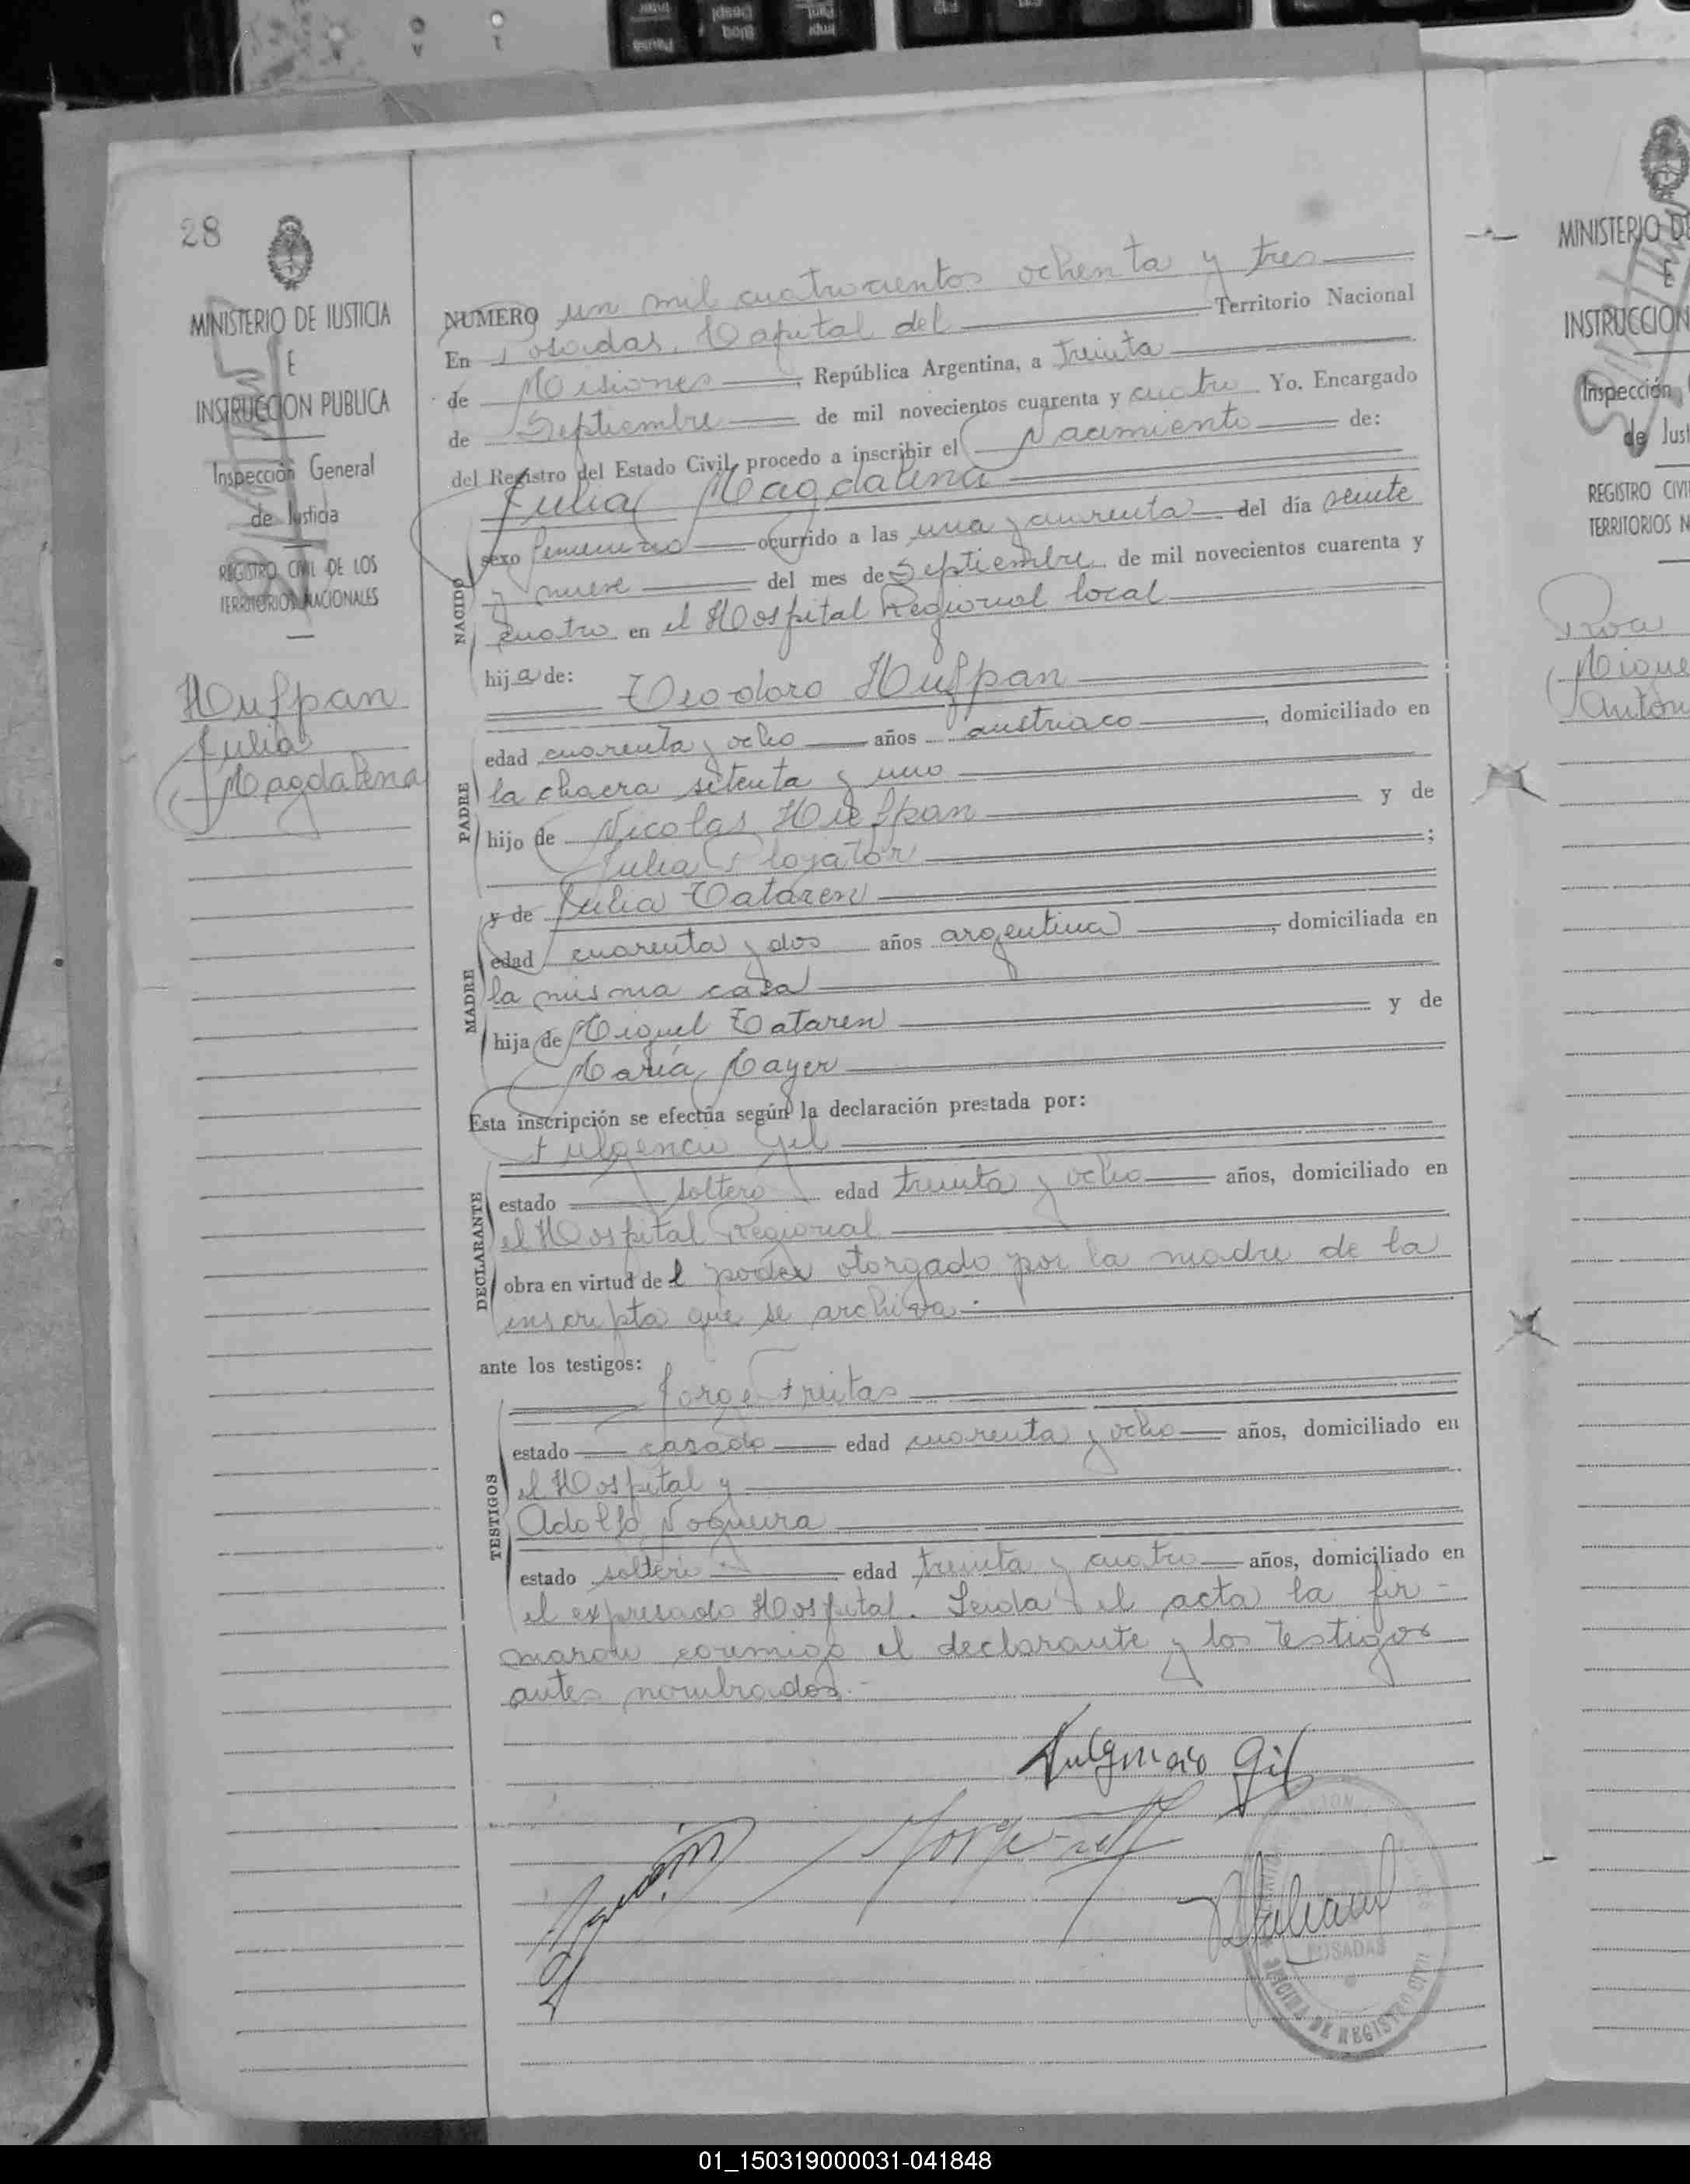 28
MINISTERIO DE JUSTICIA
E
INSTRUCCION PUBLICA
Inspección General
de Justicia
REGISTRO CIVIL DE LOS
TERRITORIOS NACIONALES
Hufpan
Julia
Magdalena
NUMERO un mil cuatrocientos ochenta y tres
En Posadas, Capital del Territorio Nacional
de Misiones, República Argentina, a treinta
de Septiembre de mil novecientos cuarenta y cuatro Yo. Encargado
del Registro del Estado Civil, procedo a inscribir el Nacimiento de:
Julia Magdalena
NACIDO
sexo femenino ocurrido a las una y cuarenta del día veinte
y nueve del mes de Septiembre de mil novecientos cuarenta y
cuatro en el Hospital Regional local
hija de: Teodoro Hufpan
PADRE
edad cuarenta y ocho años austriaco, domiciliado en
la chacra setenta y uno
hijo de Nicolas Hufpan y de
Julia ;
MADRE
y de Julia Tataren
edad cuarenta y dos años argentina, domiciliada en
la misma casa
hija de Miguel Tataren y de
María Mayer
Esta inscripción se efectúa según la declaración prestada por:
Fulgencio Gil
DECLARANTE
estado soltero edad treinta y ocho años, domiciliado en
el Hospital Regional
obra en virtud del poder otorgado por la madre de la
inscripta que se archiva.
ante los testigos:
Jorge Freitas
TESTIGOS
estado casado edad cuarenta y ocho años, domiciliado en
el Hospital y
Adolfo Nogueira
estado soltero edad treinta y cuatro años, domiciliado en
el expresado Hospital. Leida el acta la fir-
maron conmigo el declarante y los testigos
antes nombrados.-
Fulgencio Gil
POSADAS
OFICINA DE REGISTRO CIVIL
MINISTERIO DE
E
INSTRUCCION
Inspección
de Just
REGISTRO CIVI
TERRITORIOS N
Roa
Migue
Anton
01_150319000031-041848